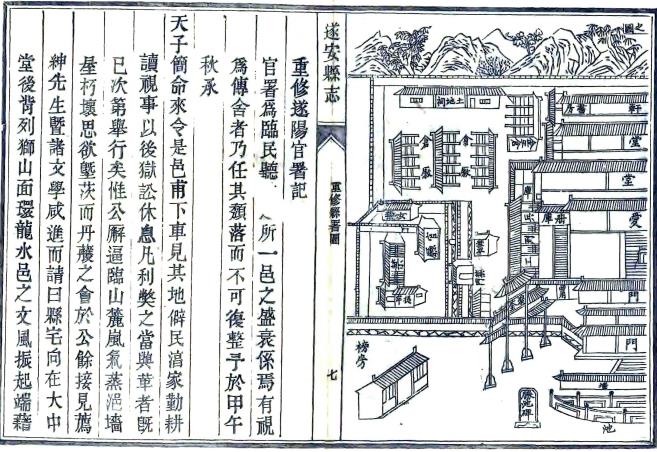 之圖
軒
堂
堂
愛
門
門
池
書房
土地祠
倉厫
倉厫
冊庫
庫
榜房
遂安縣志
重修縣署圖
七
重修遂陽官署記
官署爲臨民聽 所一邑之盛衰係焉有視
爲傳舍者乃任其頹落而不可復整予於甲午
秋承
天子簡命來令是邑甫下車見其地僻民淳家勤耕
讀視事以後獄訟休息凡利獘之當興革者旣
已次第舉行矣惟公廨逼臨山麓嵐氣蒸浥墻
垔朽壞思欲墍茨而丹雘之會於公餘接見薦
紳先生曁諸文學咸進而請曰縣宅向在大中
堂後背列獅山面環龍水邑之文風振起端藉